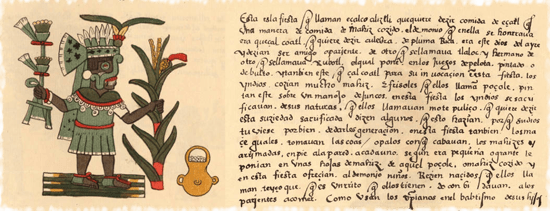 Esta isla fiesta q̃ llaman eçalcoaliztli quequiere dezir comida de eçatl q̃s
Una manera de comida de mahiz cozido. el demonio q̃ enella se honrraua
era queçalcoatl, q̃ quiere dezir culebra de pluma Rica. era este dios del ayre
y dezian ser amigo o pariente. de otro q̃ sellamaua tlaloc y hermano de
otro q̃ sellamaua xubotl, olqual ponen enlos juegos de pelota. pintado o
de bulto. y tanbien este q̃çalcoatl para su inuocaçion en esta fiesta, los
yndios cozian mucho mahiz. & frisoles q̃ ellos llama poçole, pin
tan este sobre Un manojo de Juncos. enesta fiesta los yndios se sacri
ficauan. desus naturas, q̃ ellos llamauan q̃ quiere dezir
esta suziedad sacrificada dizen algunos. q̃ esto hazian. porq̃ su dios
tuviese porbien. dedarlos generaçion, enesta fiesta tanbien los ma
çeguales. tomauan las coas / o palos con q̃ cabauan. los mahizes y
arrimadas, enpie ala pared. acadauno. segun era pequeña o grande le
ponian en unas hojas demahiz de aquel poçole, o mahiz cozido y
en esta fiesta ofreçian. al demonio niños Rezien naçidos q̃ ellos lla
man q̃ es Un rrito q̃ ellos tienen. de conbidauan. a los
parientes a comer. Como Usan los xpianos enel baptismo desus hijos